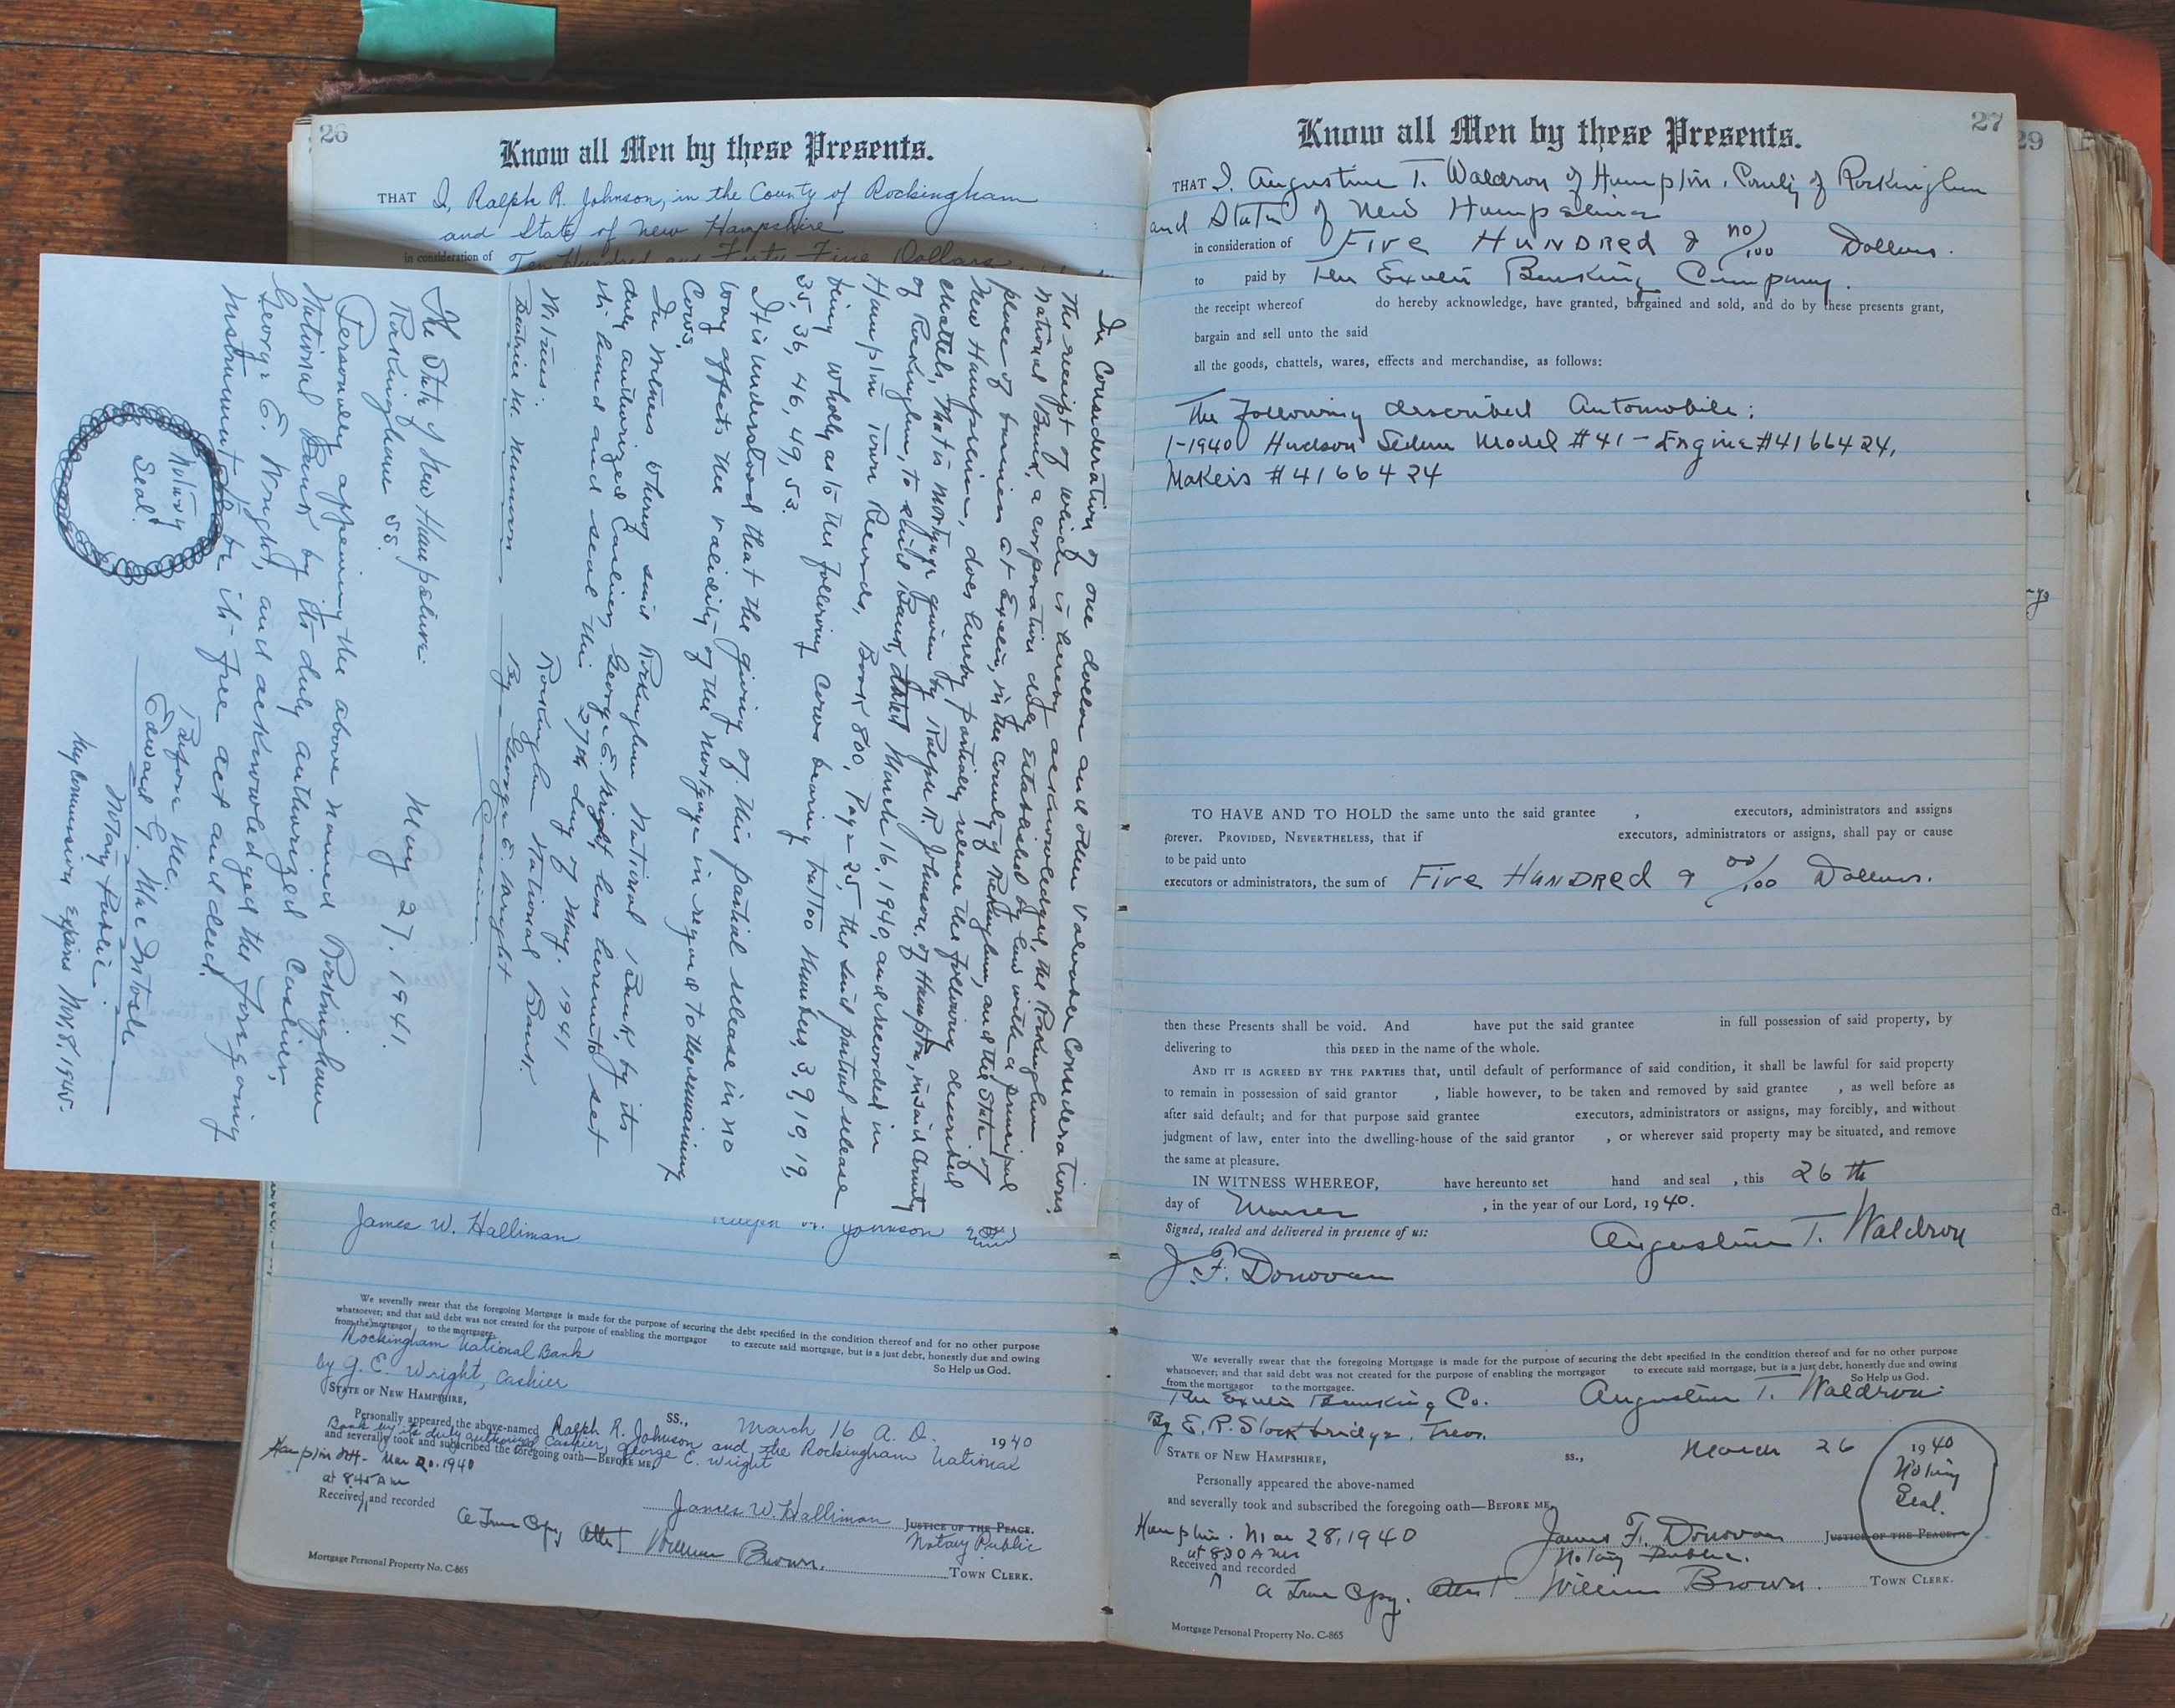 26
Know all Men by these Presents.
THAT I, Ralph R. Johnson, in the County of Rockingham
and State of New Hampshire
in consideration of Ten Hundred and Forty Five Dollars
In Consideration of one dollar and other valuable Considerations,
the receipt of which is hereby acknowledged, the Rockingham
National Bank, a corporation duly Established by law with a principal
place of business at Exeter, in the County of Rockingham, and the State of
New Hampshire, does hereby partially release the following described
chattels, that is mortgage given by Ralph R. Johnson, of Hampton, in said County
of Rockingham, to said Bank, dated March 16, 1940, and recorded in
Hampton Town Records, Book 800, Page 25, the said partial release
being wholly as to the following Cows bearing tattoo Numbers, 3, 9, 10, 19,
35, 36, 46, 49, 53.
It is understood that the giving of this partial release in no
way affects the validity of the Mortgage in regard to the remaining
Cows.
In Witness whereof said Rockingham National Bank, by its
duly authorized Cashier, George E. Wright, has hereunto set
his hand and seal this 27th day of May. 1941
Witness: Rockingham National Bank
By George E. Wright
Cashier
The State of New Hampshire:
Rockingham SS. May 27. 1941.
Personally appearing the above named Rockingham
National Bank by its duly authorized Cashier,
George E. Wright, and acknowledged the foregoing
instrument to be its free act and deed.
Before me
Edward G.
Notary Public
My Commission Expires
Notary
Seal.
James W. Halliman Ralph R. Johnson
We severally swear that the foregoing Mortgage is made for the purpose of securing the debt specified in the condition thereof and for no other purpose
whatsoever; and that said debt was not created for the purpose of enabling the mortgagor to execute said mortgage, but is a just debt, honestly due and owing
from the mortgagor to the mortgagee. So Help us God.
Rockingham National Bank
by G. E. Wright, Cashier
STATE OF NEW HAMPSHIRE,
SS., March 16 A. D. 1940
Personally appeared the above-named Ralph R. Johnson and the Rockingham National
Bank by its duly authorized Cashier, George E. Wright
and severally took and subscribed the foregoing oath—BEFORE ME,
Hampton NH. Mar 20. 1940
at 8.45 AM
Received and recorded
James W. Halliman JUSTICE OF THE PEACE.
Notary Public
A True Copy Attest William Brown. TOWN CLERK.
Mortgage Personal Property No. C-865
27
Know all Men by these Presents.
THAT I, Augustine T. Waldron of Hampton, County of Rockingham
and State of New Hampshire
in consideration of Five Hundred & no/100 Dollars.
to paid by The Exeter Banking Company.
the receipt whereof do hereby acknowledge, have granted, bargained and sold, and do by these presents grant,
bargain and sell unto the said
all the goods, chattels, wares, effects and merchandise, as follows:
The Following described Automobile:
1-1940 Hudson Sedan Model #41 - Engine #4166424,
Makers #4166424
TO HAVE AND TO HOLD the same unto the said grantee , executors, administrators and assigns
forever. PROVIDED, NEVERTHELESS, that if executors, administrators or assigns, shall pay or cause
to be paid unto
executors or administrators, the sum of Five Hundred & 00/100 Dollars.
then these Presents shall be void. And have put the said grantee in full possession of said property, by
delivering to this DEED in the name of the whole.
AND IT IS AGREED BY THE PARTIES that, until default of performance of said condition, it shall be lawful for said property
to remain in possession of said grantor , liable however, to be taken and removed by said grantee , as well before as
after said default; and for that purpose said grantee executors, administrators or assigns, may forcibly, and without
judgment of law, enter into the dwelling-house of the said grantor , or wherever said property may be situated, and remove
the same at pleasure.
IN WITNESS WHEREOF, have hereunto set hand and seal , this 26th
day of March , in the year of our Lord, 1940.
Signed, sealed and delivered in presence of us:
Augustine T. Waldron
J. F. Donovan
We severally swear that the foregoing Mortgage is made for the purpose of securing the debt specified in the condition thereof and for no other purpose
whatsoever; and that said debt was not created for the purpose of enabling the mortgagor to execute said mortgage, but is a just debt, honestly due and owing
from the mortgagor to the mortgagee. So Help us God.
The Exeter Banking Co. Augustine T. Waldron
By E. R. Stockbridge, Treas.
STATE OF NEW HAMPSHIRE, ss., March 26 1940
Notary
Seal.
Personally appeared the above-named
and severally took and subscribed the foregoing oath—BEFORE ME,
Hampton. Mar 28, 1940
at 8.30 AM
Received and recorded
James F. Donovan JUSTICE OF THE PEACE.
Notary Public.
A True Copy. Attest William Brown. TOWN CLERK.
Mortgage Personal Property No. C-865
29